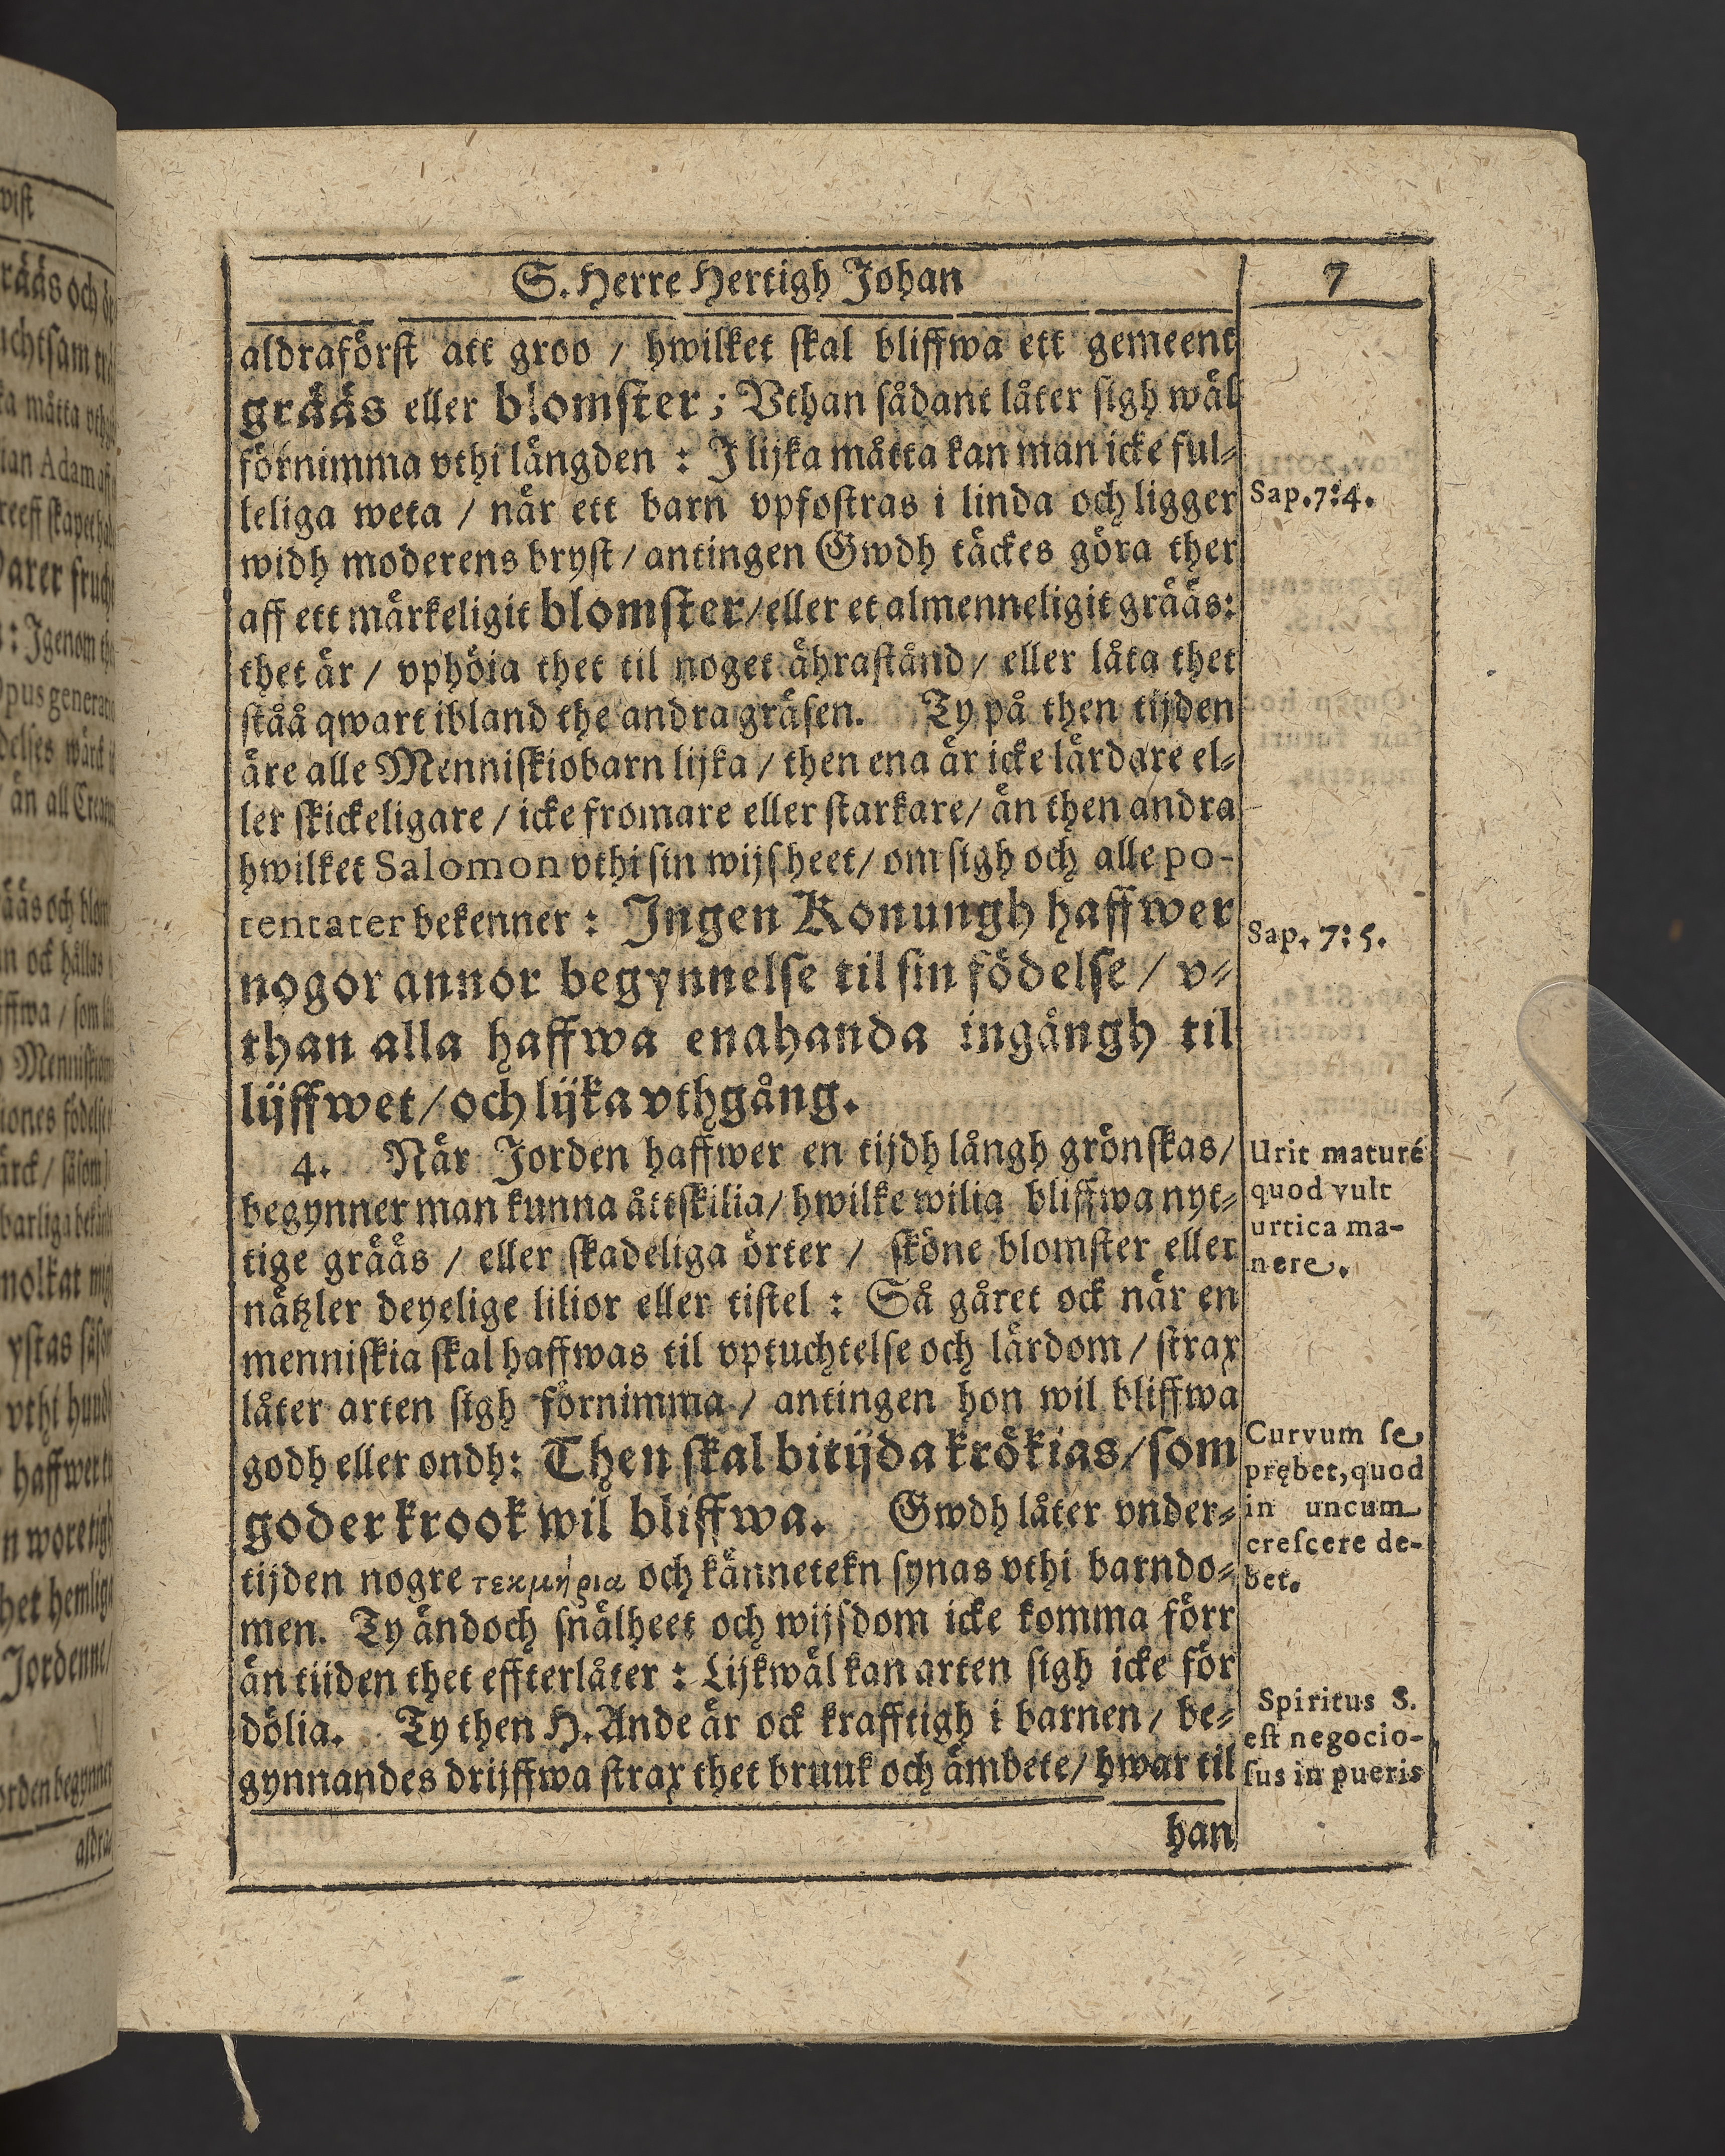 S. Herre Hertigh Johan
7
aldraförst att groo / hwilket skal bliffwa ett gemeent
grääs eller blomster; Vthan sådant låter sigh wäl
förnimma vthi längden : J lijka måtta kan man icke ful⸗
keliga weta / när ett barn vpfostras i linda och ligger
widh moderens bryst / antingen Gwdh täckes göra ther
aff ett märkeligit blomster/eller et almenneligit grääs:
thet är / vphöia thet til noget ährastånd / eller låta thet
ståå qwart ibland the andra gräsen. Ty på then tijden
äre alle Menniskiobarn lijka / then ena är icke lärdare el⸗
ler skickeligare / icke fromare eller starkare / än then andra
hwilket Salomon vthi sin wijsheet / om sigh och alle po-
tentater bekenner : Jngen Konungh haffwer
nogor annor begynnelse til sin födelse / v⸗
than alla haffwa enahanda ingångh til
lijffwet / och lijka vthgång.
4. När Jorden haffwer en tijdh långh grönskas /
begynner man kunna åttskilia / hwilke wilia bliffwa nyt⸗
tige grääs / eller skadeliga örter / sköne blomster eller
nätzler deyelige lilior eller tistel : Så gåret ock när en
menniskia skal haffwas til vptuchtelse och lärdom / strax
låter arten sigh förnimma / antingen hon wil bliffwa
godh eller ondh: Then skal bitijda krökias / som
goder krook wil bliffwa. Gwdh låter vnder⸗
tijden nogre τεκμήρια och kännetekn synas vthi barndo⸗
men. Ty ändoch snälheet och wijsdom icke komma förr
än tiiden thet effterlåter : Lijkwäl kan arten sigh icke för
dölia. Ty then H. Ande är ock krafftigh i barnen / be⸗
gynnandes drijffwa strax thet bruuk och ämbete / hwar til
han
Sap. 7:4.
Sap. 7:5.
Urit maturé
quod vult
urtica ma-
nere.
Curvum se
prębet, quod
in uncum
crescere de-
bet.
Spiritus S.
est negocio-
sus in pueris